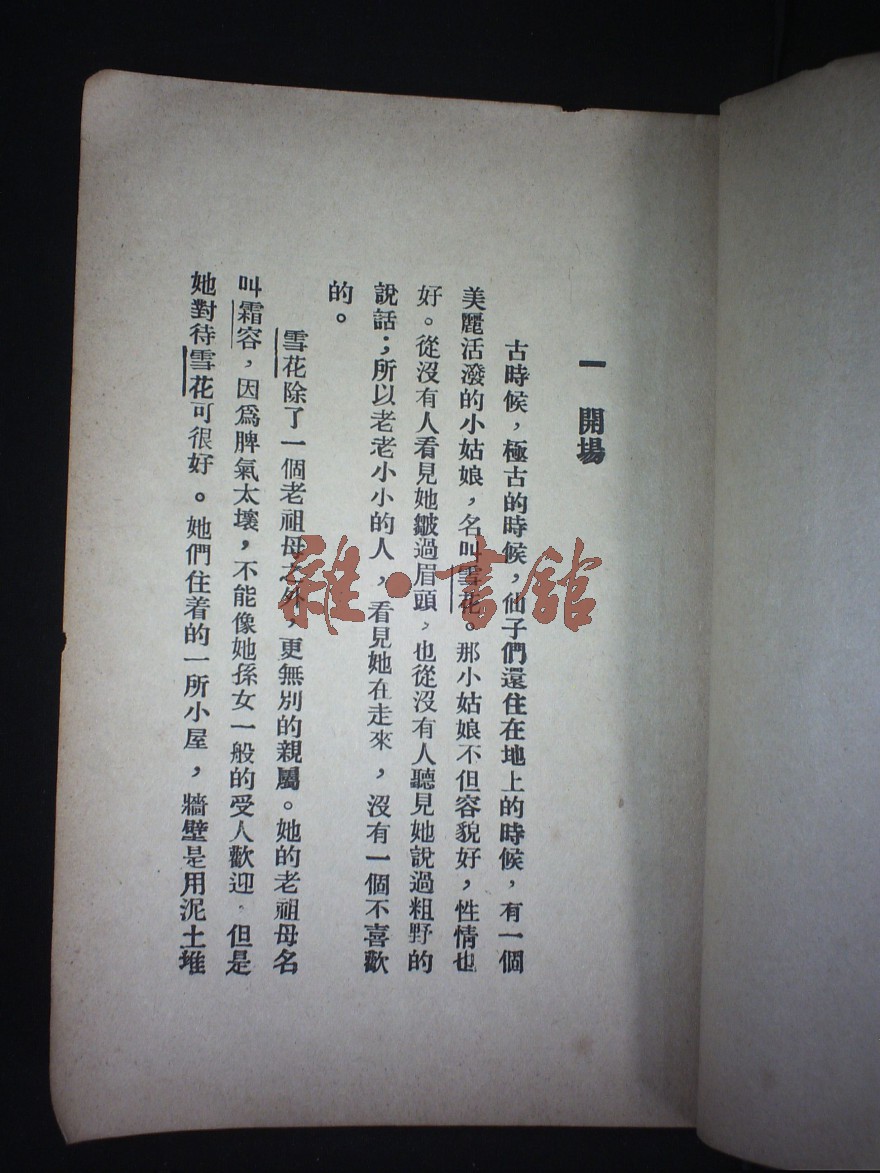 一　開場
古時候，極古的時候，仙子們還住在地上的時候，有一個
美麗活潑的小姑娘，名叫雪花。那小姑娘不但容貌好，性情也
好。從沒有人看見她皺過眉頭，也從沒有人聽見她說過粗野的
說話；所以老老小小的人，看見她在走來，沒有一個不喜歡
的。
雪花除了一個老祖母之外，更無別的親屬。她的老祖母名
叫霜容，因爲脾氣太壞，不能像她孫女一般的受人歡迎。但是
她對待雪花可很好。她們住着的一所小屋，牆壁是用泥土堆
雜·書館